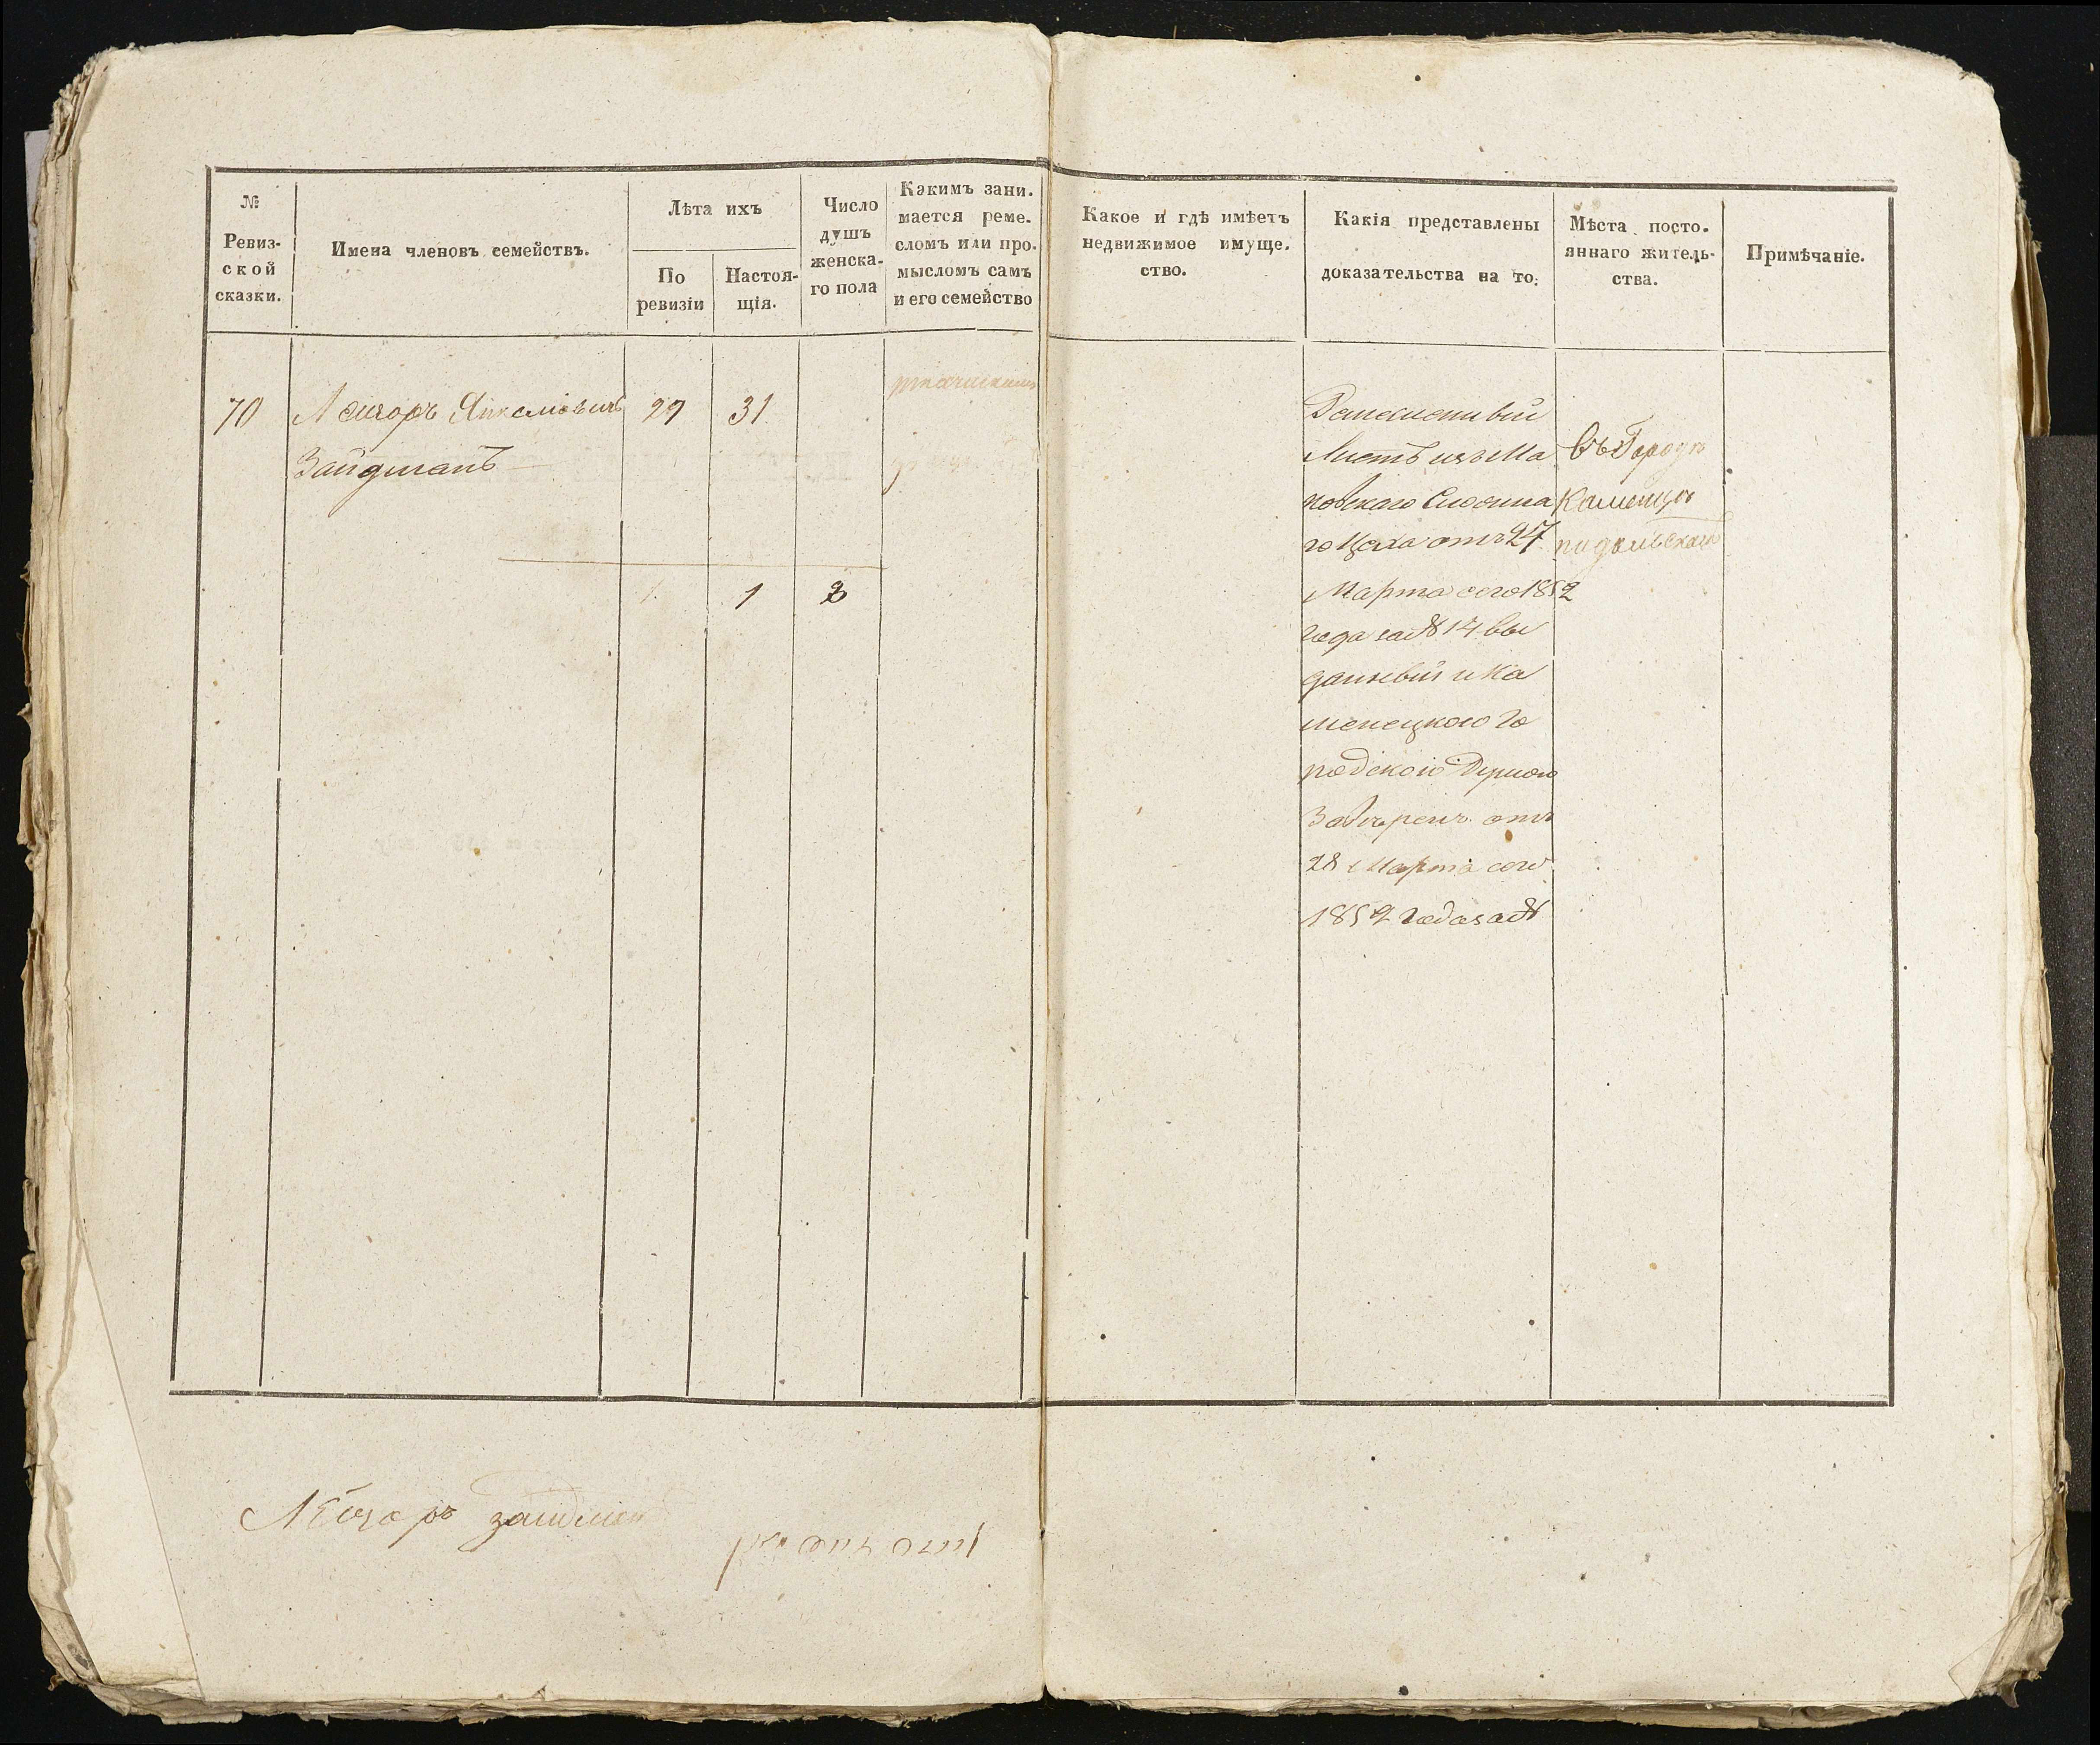 №
Ревиз-
ской
сказки.
Имена членовъ семействъ.
Лѣта ихъ
По
ревизіи
Настоя-
щія.
Число
душъ
женска-
го пола
Какимъ зани-
мается реме-
сломъ или про-
мысломъ самъ
и его семейство
Какое и гдѣ имѣетъ
недвижимое имуще-
ство.
Какія представлены
доказательства на то.
Мѣста посто-
яннаго житель-
ства.
Примѣчаніе.
70
Лейзоръ Янкеліовичъ
29
31
Зайдманъ
1
1
3
Листъ изъ
Цеха отъ 27
Марта сего 1852
года за № 14 вы
данный и Ка
менецкою Го
родскою Думою
Завѣренъ отъ
28 Марта сего
1852 года за №
Въ Городѣ
Каменцѣ
подольскомъ
Лейзоръ зайдман